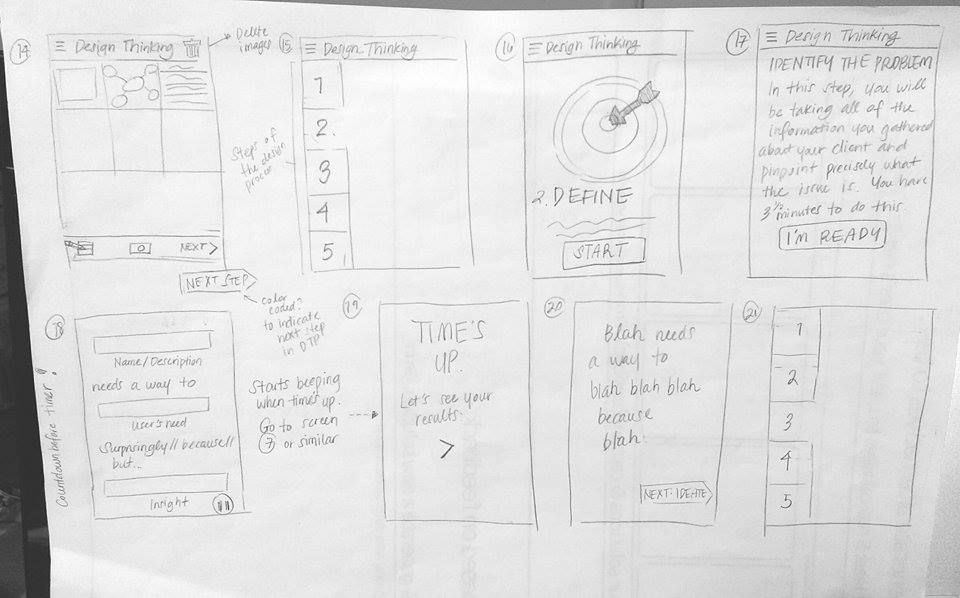 14
Design Thinking
Delete
images
NEXT >
NEXT STEP
color
coded?
to indicate
next step
in DTP
15
Design Thinking
Steps of
the design
process
1
2.
3
4
5
16
Design Thinking
2. DEFINE
START
17
Design Thinking
IDENTIFY THE PROBLEM
In this step, you will
be taking all of the
information you gathered
about your client and
pinpoint precisely what
the issue is. You have
3 1/2 minutes to do this.
I'M READY
18
Countdown before timer?
Name/Description
needs a way to
User's need
Surprisingly // because //
but...
Insight
Starts beeping
when time's up.
Go to screen
7 or similar
19
TIME'S
UP.
Let's see your
results.
>
20
Blah needs
a way to
blah blah blah
because
blah.
NEXT: IDEATE
21
1
2
3
4
5